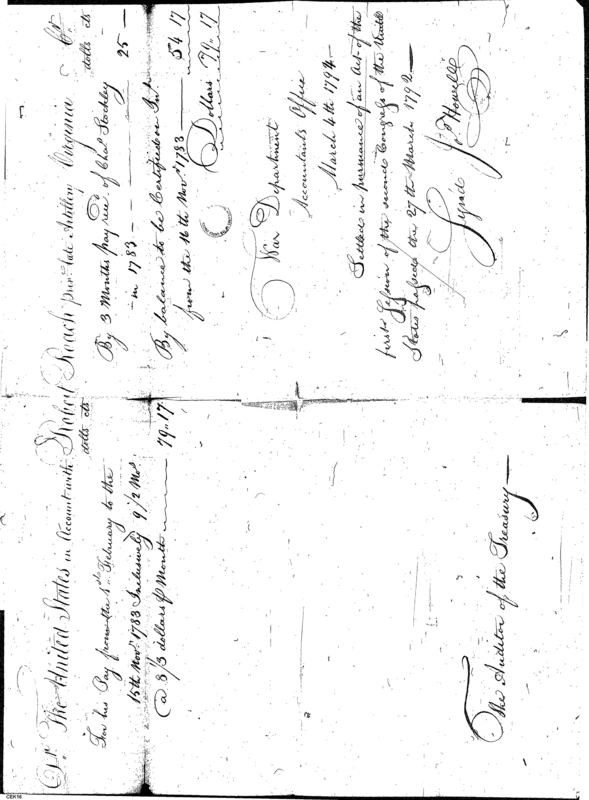 Dr. The United States in Account with Robert Roach priv. late Artillery Virginia Cr.
dolls cts
For his Pay from the 1st February to the
15th Novr. 1783 Inclusively 9 1/2 Mos.
@ 8 1/3 dollars p Month 79.. 17
dolls cts
By 3 Months Pay rec. of Chas. Stockley
in 1783 25
By balance to be Certified on Int.
from the 16th Novr. 1783 54 17
Dollars 79.. 17
War Department
Accountants Office
March 4th 1794
Settled in pursuance of an Act of the
first Session of the second Congress of the United
States passed the 27th March 1792
Signed Jos. Howell
The Auditor of the Treasury
CEK16